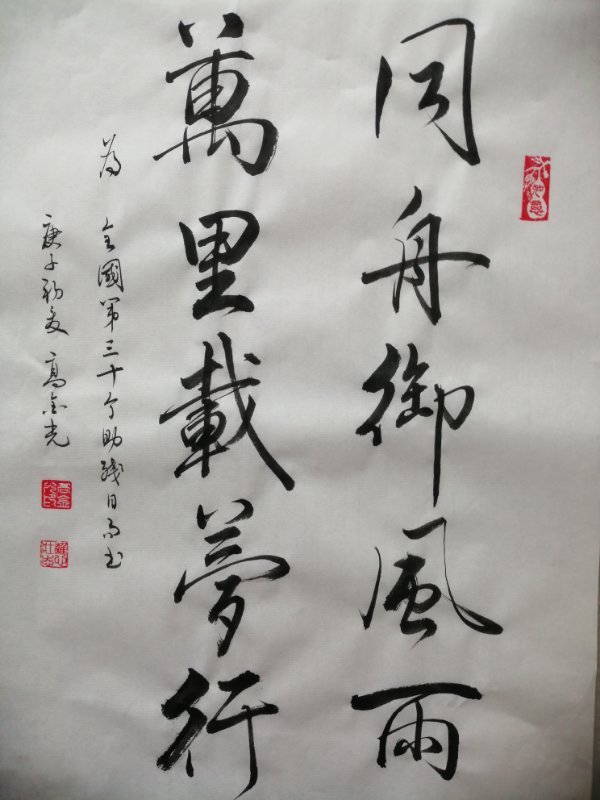 同舟御風雨
萬里載夢行
為 全國第三十個助殘日而書
庚子初夏 高金光